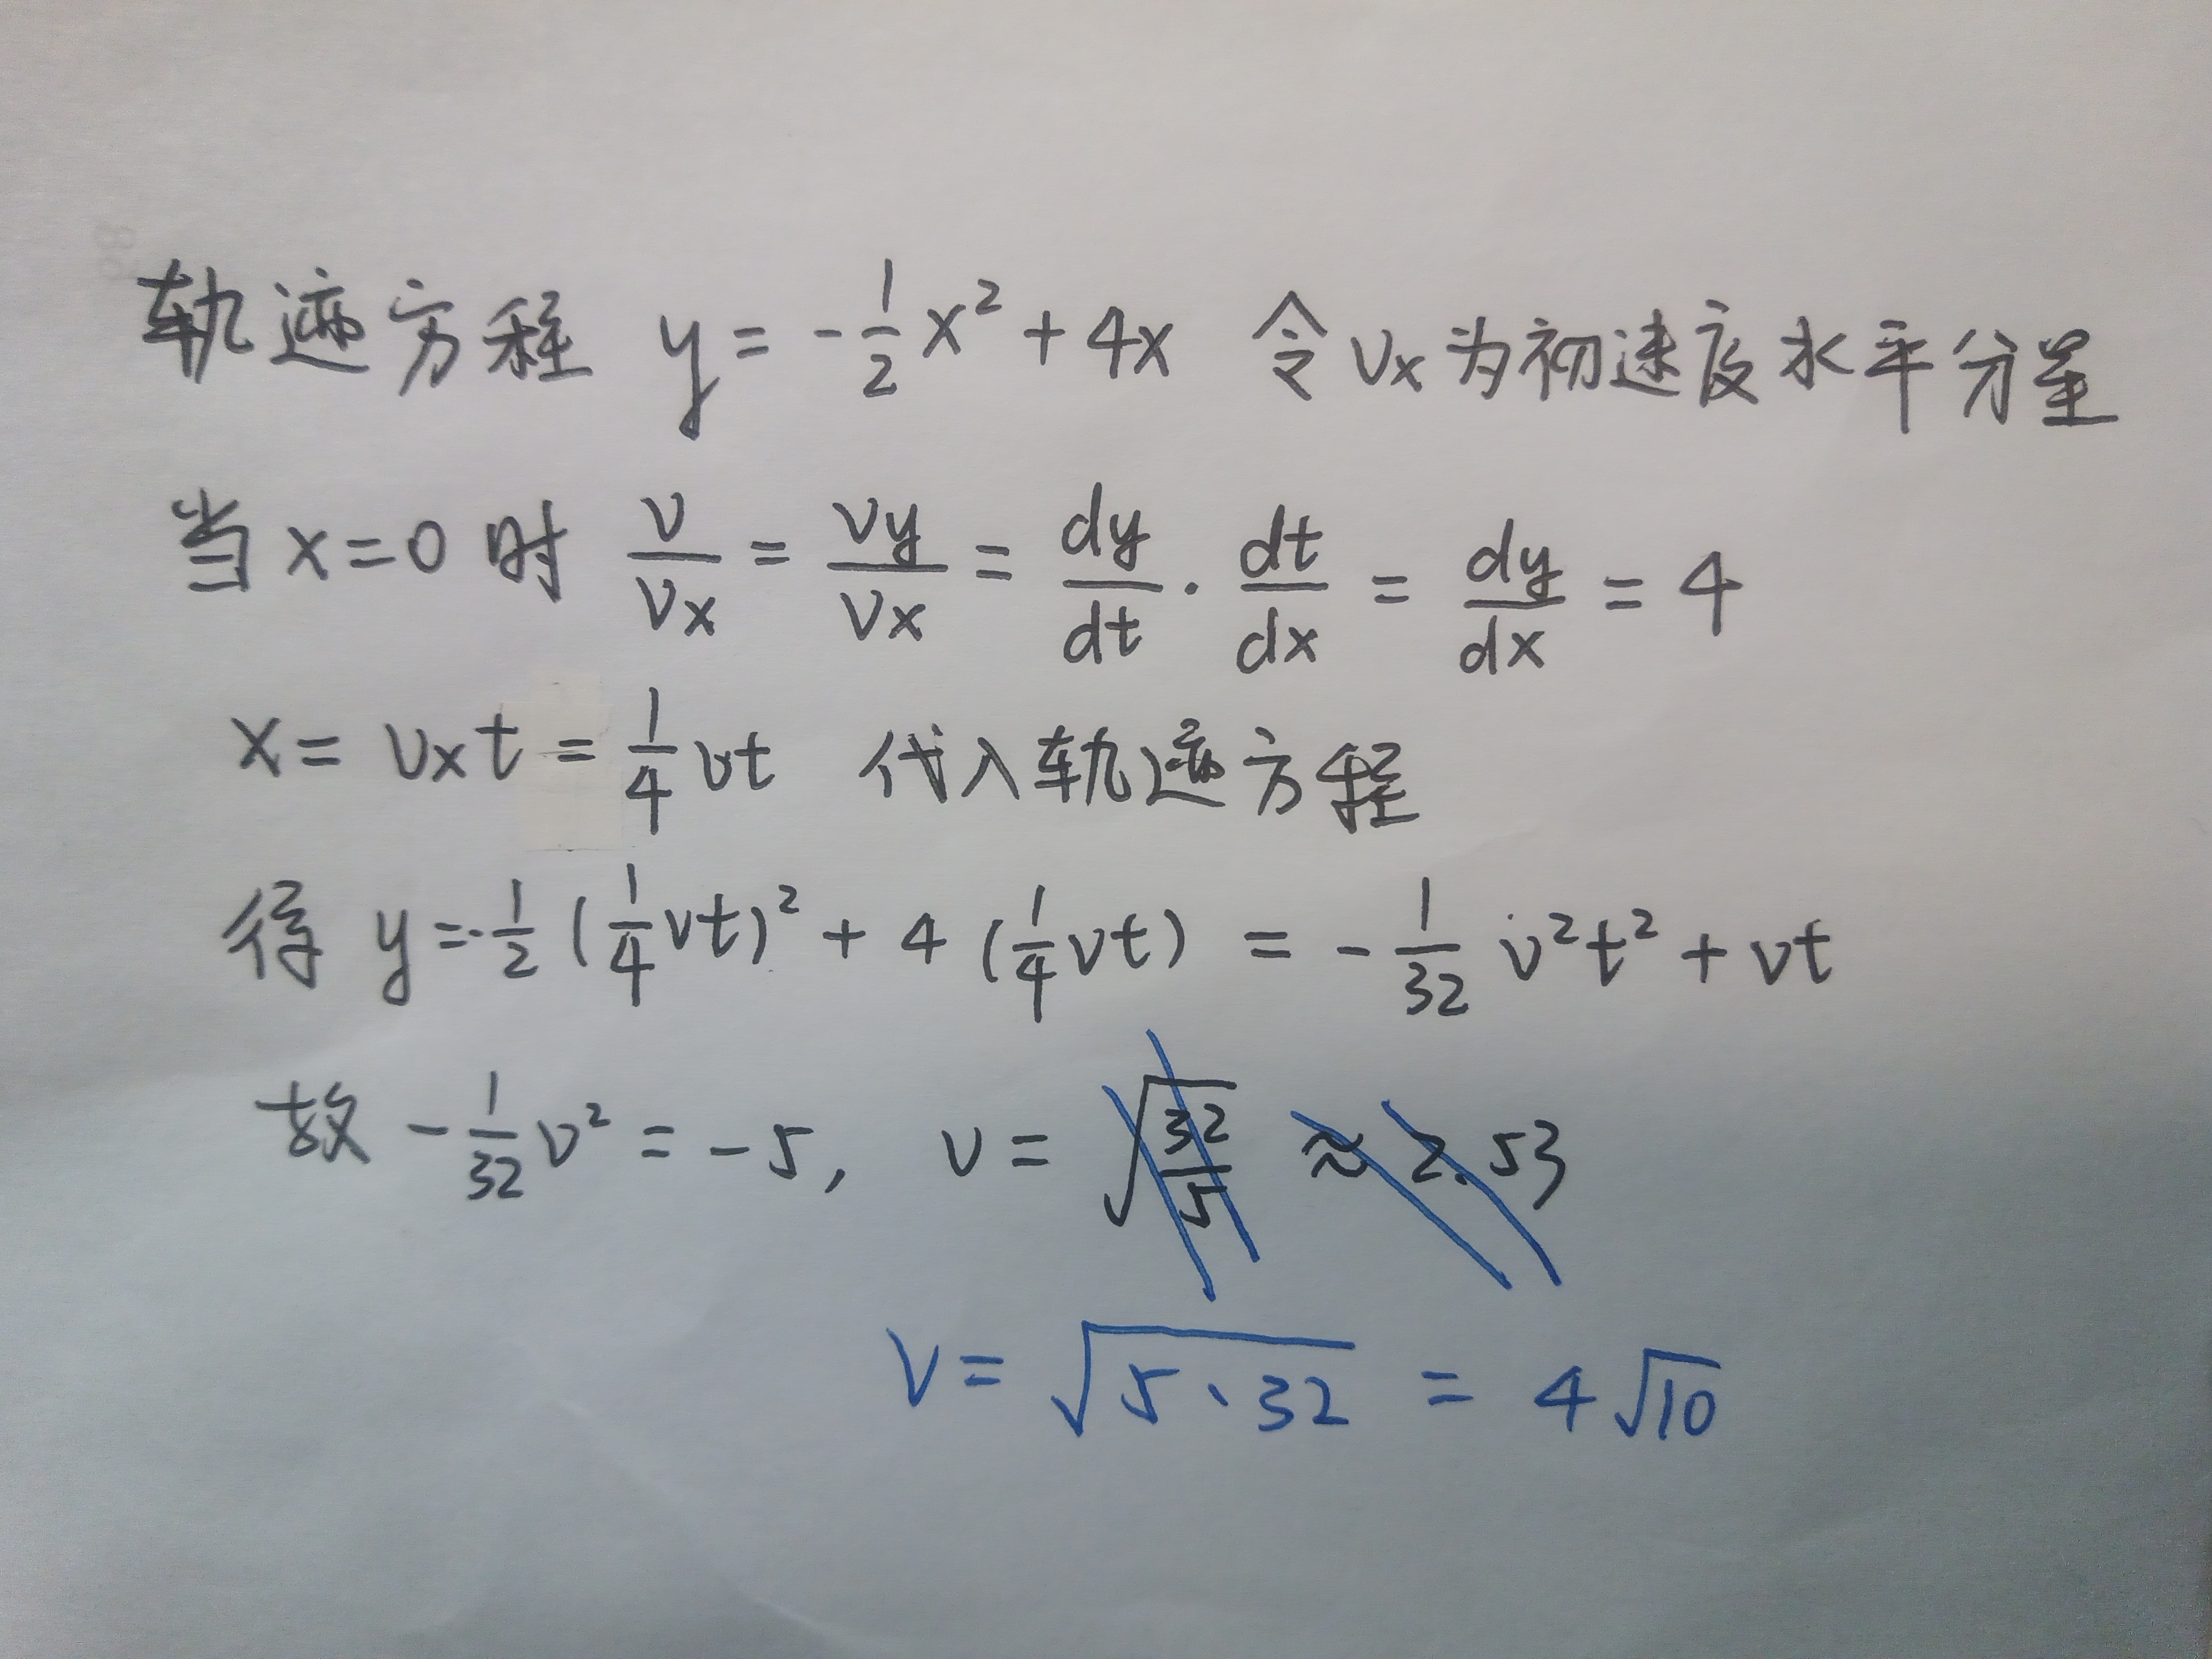 轨迹方程 y = -1/2 x² + 4x 令 vx 为初速度水平分量
当 x=0 时 v/vx = vy/vx = dy/dt · dt/dx = dy/dx = 4
x = vxt = 1/4 vt 代入轨迹方程
得 y = -1/2 (1/4 vt)² + 4 (1/4 vt) = -1/32 v²t² + vt
故 -1/32 v² = -5, v = √(32/5) ≈ 2.53
v = √(5·32) = 4√10